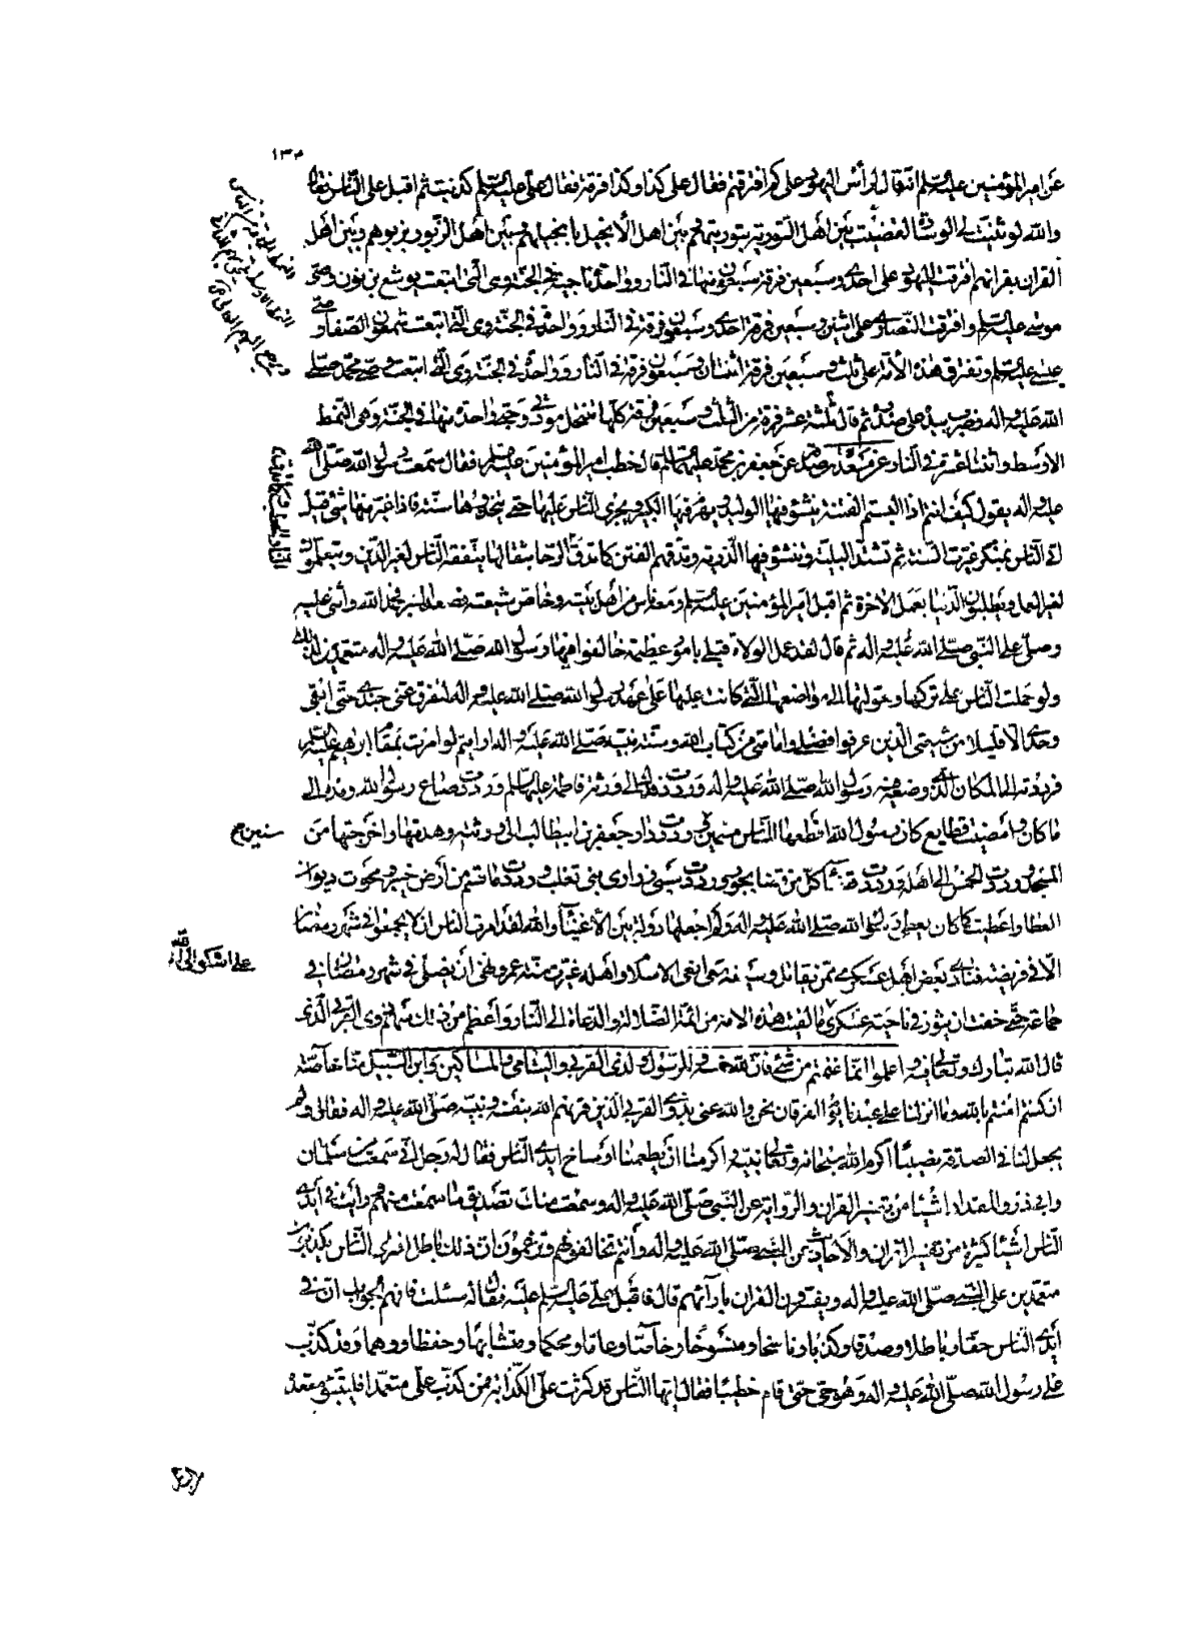 ١٣٢
عن امير المؤمنين عليه السلم انه قال لرأس اليهود على كم افترقتم فقال على كذا وكذا فرقة فقال على عليه السلم كذبت ثم اقبل على الناس فقال
والله لو ثنيت لى الوسادة لقضيت بين اهل التورية بتوريتهم وبين اهل الانجيل بانجيلهم وبين اهل الزبور بزبورهم وبين اهل
القران بقرانهم افترقت اليهود على احدى وسبعين فرقة سبعون منها فى النار وواحدة ناجية فى الجنة وهى التى اتبعت يوشع بن نون وصى
موسى عليه السلم وافترقت النصارى على اثنين وسبعين فرقة احدى وسبعون فرقة فى النار وواحدة فى الجنة وهى التى اتبعت شمعون الصفا وصى
عيسى عليه السلم وتفترق هذه الامة على ثلث وسبعين فرقة اثنتان وسبعون فرقة فى النار وواحدة فى الجنة وهى التى اتبعت وصى محمد صلى
الله عليه واله وضرب بيده على صدره ثم قال ثلثة عشر فرقة من الثلث وسبعين فرقة كلها تنتحل مودتى وحبى واحدة منها فى الجنة وهى النمط
الاوسط واثنتا عشرة فى النار عن جعفر بن محمد عليهما السلم قال خطب امير المؤمنين عليه السلم فقال سمعت رسول الله صلى الله
عليه واله يقول كيف انتم اذا البستم الفتنة ينشؤ فيها الوليد ويهرم فيها الكبير ويجرى الناس عليها حتى يتخذوها سنة فاذا غير منها شئ قيل
اتى الناس بمنكر غيرت السنة ثم تشتد البلية وتنشؤ فيها الذرية وتدقهم الفتن كما تدق الرحا بثفالها يتفقه الناس لغير الدين ويتعلمون
لغير العمل ويطلبون الدنيا بعمل الاخرة ثم اقبل امير المؤمنين عليه السلم ومعه ناس من اهل بيته وخاص من شيعته فصعد المنبر فحمد الله واثنى عليه
وصلى على النبى صلى الله عليه واله ثم قال لقد عمل الولاة قبلى بامور عظيمة خالفوا فيها رسول الله صلى الله عليه واله متعمدين لذلك
ولو حملت الناس على تركها وحولتها الى مواضعها التى كانت عليها على عهد رسول الله صلى الله عليه واله لتفرق عنى جندى حتى ابقى
وحدى الا قليلا من شيعتى الذين عرفوا فضلى وامامتى من كتاب الله وسنة نبيه صلى الله عليه واله ارايتم لو امرت بمقام ابرهيم عليه السلم
فرددته الى المكان الذى وضعه فيه رسول الله صلى الله عليه واله ورددت فدك الى ورثة فاطمة عليها السلم ورددت صاع رسول الله ومده الى
ما كان وامضيت قطايع كان رسول الله اقطعها للناس مسمين ورددت دار جعفر بن ابيطالب الى ورثته وهدمتها واخرجتها من
المسجد ورددت الخمس الى اهله ورددت قضاء كل من قضا بجور ورددت سبى ذرارى بنى تغلب ورددت ما قسم من أرض خيبر ومحوت ديوان
العطا واعطيت كما كان يعطى رسول الله صلى الله عليه واله ولم اجعلها دولة بين الاغنياء والله لقد امرت الناس ان لا يجمعوا فى شهر رمضان
الا فى فريضة فنادى بعض اهل عسكرى ممن يقاتل وسيفه معى انعى الاسلام واهله غيرت سنة عمر ونهى ان يصلى فى شهر رمضان فى
جماعة حتى خفت ان يثور فى ناحية عسكرى ما لقيت هذه الامة من ائمة الضلالة والدعاة الى النار وأعظم من ذلك سهم ذوى القربى الذى
قال الله تبارك وتعالى فيه واعلموا انما غنمتم من شئ فان لله خمسه وللرسول ولذى القربى واليتامى والمساكين وابن السبيل منا خاصة
ان كنتم امنتم بالله وما انزلنا على عبدنا يوم الفرقان نحن والله عنى بذوى القربى الذين قرنهم الله بنفسه ونبيه صلى الله عليه واله فقال ولم
يجعل لنا فى الصدقة نصيبا اكرم الله سبحانه وتعالى نبيه واكرمنا ان يطعمنا اوساخ ايدى الناس فقال له رجل انى سمعت من سلمان
وابى ذر والمقداد اشياء من تفسير القران والرواية عن النبى صلى الله عليه واله وسمعت منك تصديق ما سمعت منهم ورأيت فى أيدى
الناس اشياء كثيرة من تفسير القران والاحاديث عن النبى صلى الله عليه واله وأنتم تخالفونهم وتزعمون ان ذلك باطل افترى الناس يكذبون
متعمدين على النبى صلى الله عليه واله ويفسرون القران بآرائهم قال فاقبل على عليه السلم عليه فقال له سئلت فافهم الجواب ان فى
أيدى الناس حقا وباطلا وصدقا وكذبا وناسخا ومنسوخا وخاصا وعاما ومحكما ومتشابها وحفظا ووهما وقد كذب
على رسول الله صلى الله عليه واله وهو حى حتى قام خطيبا فقال ايها الناس قد كثرت على الكذابة فمن كذب على متعمدا فليتبوء مقعده
سنين ج
على اشكو الى الله